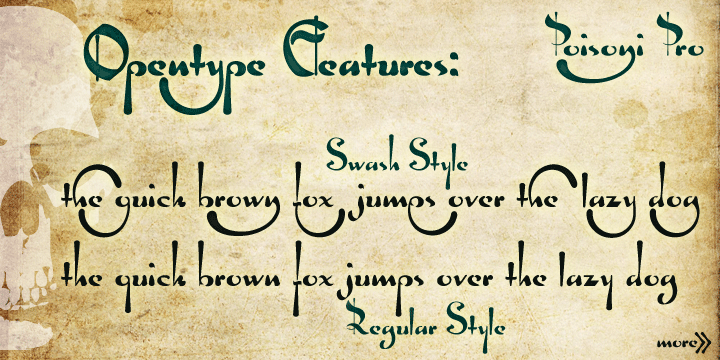 Opentype Features:
Poisoni Pro
Swash Style
the quick brown fox jumps over the lazy dog
the quick brown fox jumps over the lazy dog
Regular Style
more